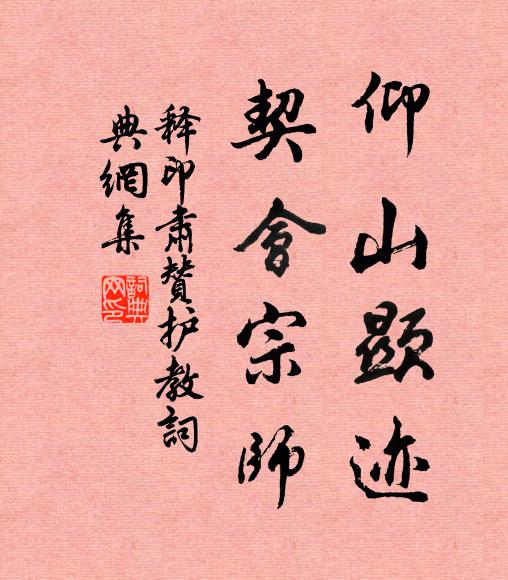 仰山顯迹
契會宗師
释印肃赞护教詞
典網集
詞典
网印